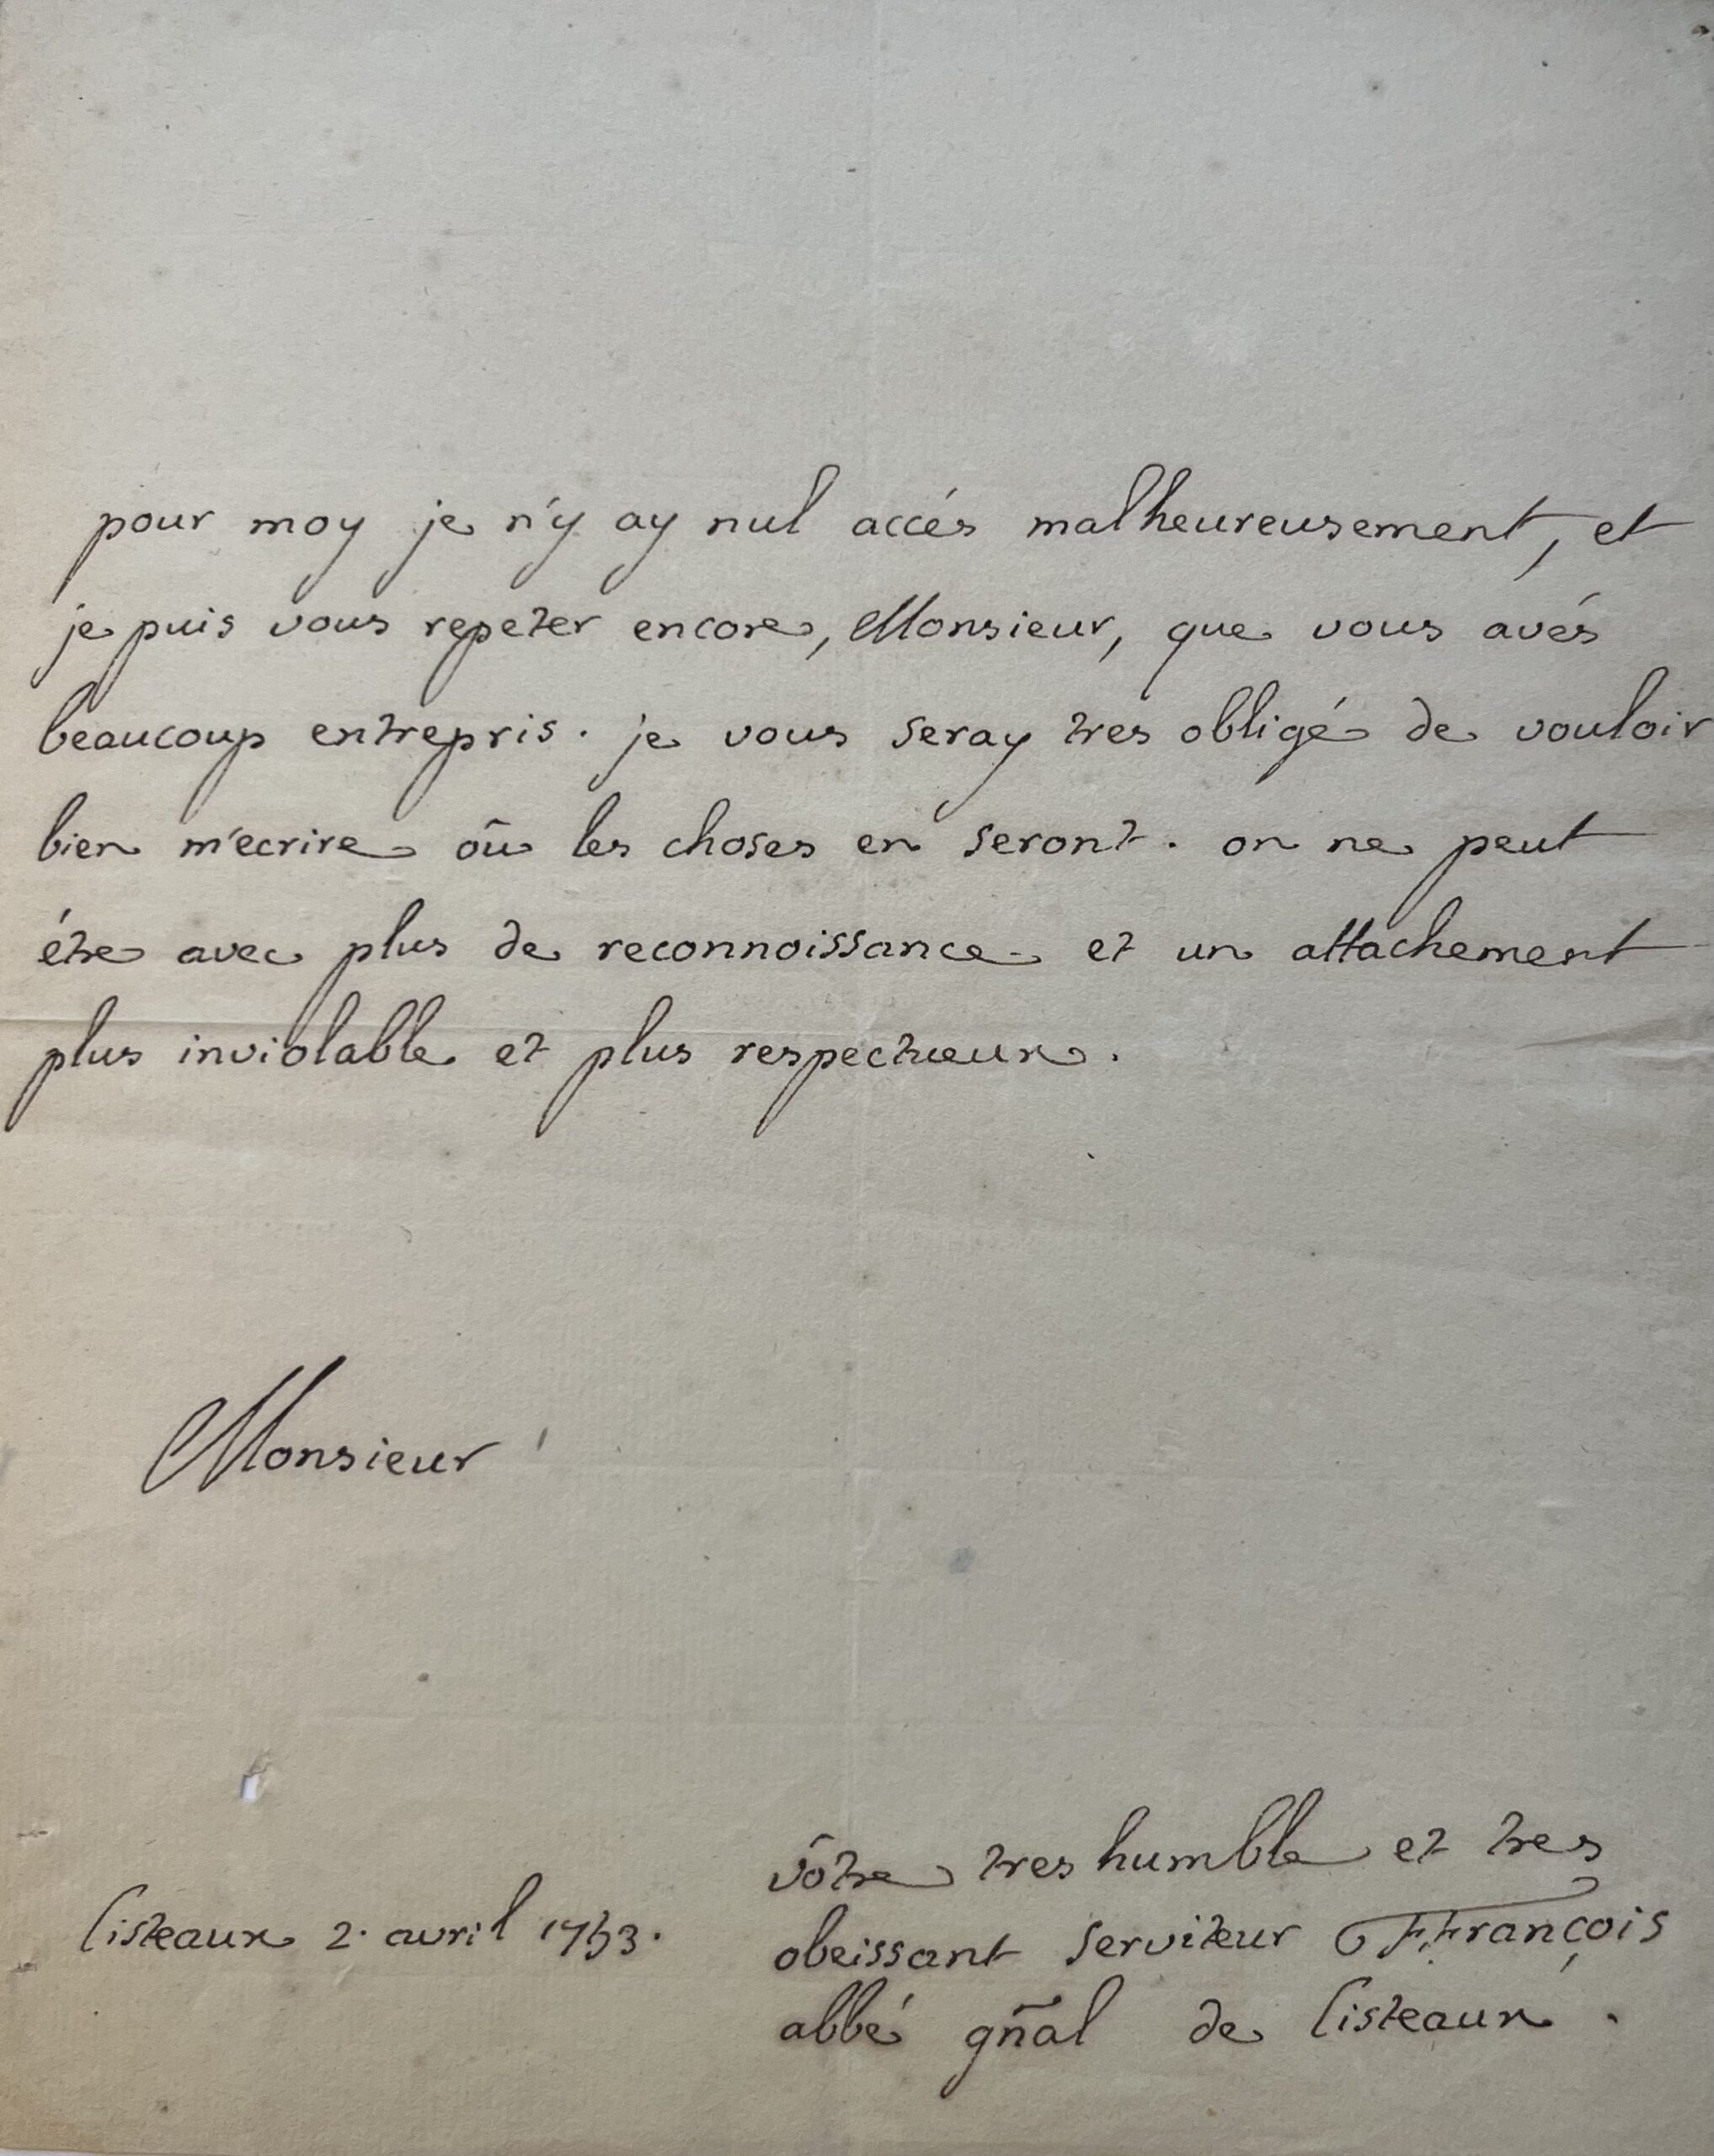 pour moy je n'y ay nul accés malheureusement, et
je puis vous repeter encore, Monsieur, que vous avés
beaucoup entrepris. je vous seray tres obligé de vouloir
bien m'ecrire où les choses en seront. on ne peut
étre avec plus de reconnoissance et un attachement
plus inviolable et plus respectueux.
Monsieur
vôtre tres humble et tres
obeissant serviteur F. François
abbé gñal de Cisteaux.
Cisteaux 2. avril 1753.